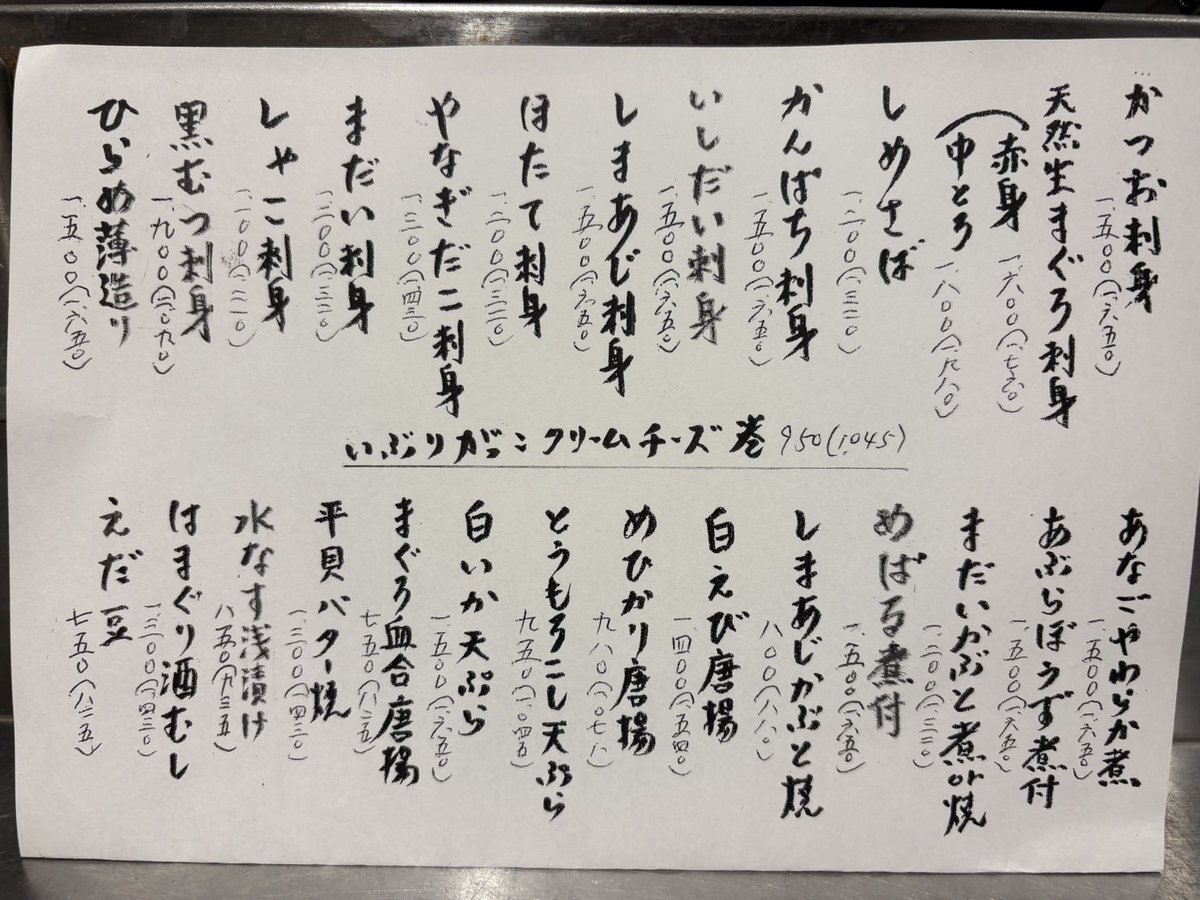 かつお刺身
一、五〇〇(一、六五〇)
天然生まぐろ刺身
赤身
一、六〇〇(一、七六〇)
中とろ
一、八〇〇(一、九八〇)
しめさば
一、二〇〇(一、三二〇)
かんぱち刺身
一、五〇〇(一、六五〇)
いしだい刺身
一、五〇〇(一、六五〇)
しまあじ刺身
一、五〇〇(一、六五〇)
ほたて刺身
一、二〇〇(一、三二〇)
やなぎだこ刺身
一、三〇〇(一、四三〇)
まだい刺身
一、二〇〇(一、三二〇)
しゃこ刺身
一、一〇〇(一、二一〇)
黒むつ刺身
一、九〇〇(二、〇九〇)
ひらめ薄造り
一、五〇〇(一、六五〇)
いぶりがっこクリームチーズ巻 950(1,045)
あなごやわらか煮
一、五〇〇(一、六五〇)
あぶらぼうず煮付
一、五〇〇(一、六五〇)
まだいかぶと煮or焼
一、二〇〇(一、三二〇)
めばる煮付
一、五〇〇(一、六五〇)
しまあじかぶと焼
八〇〇(八八〇)
白えび唐揚
一、四〇〇(一、五四〇)
めひかり唐揚
九八〇(一、〇七八)
とうもろこし天ぷら
九五〇(一、〇四五)
白いか天ぷら
一、五〇〇(一、六五〇)
まぐろ血合唐揚
七五〇(八二五)
平貝バター焼
一、三〇〇(一、四三〇)
水なす浅漬け
八五〇(九三五)
はまぐり酒むし
一、三〇〇(一、四三〇)
えだ豆
七五〇(八二五)